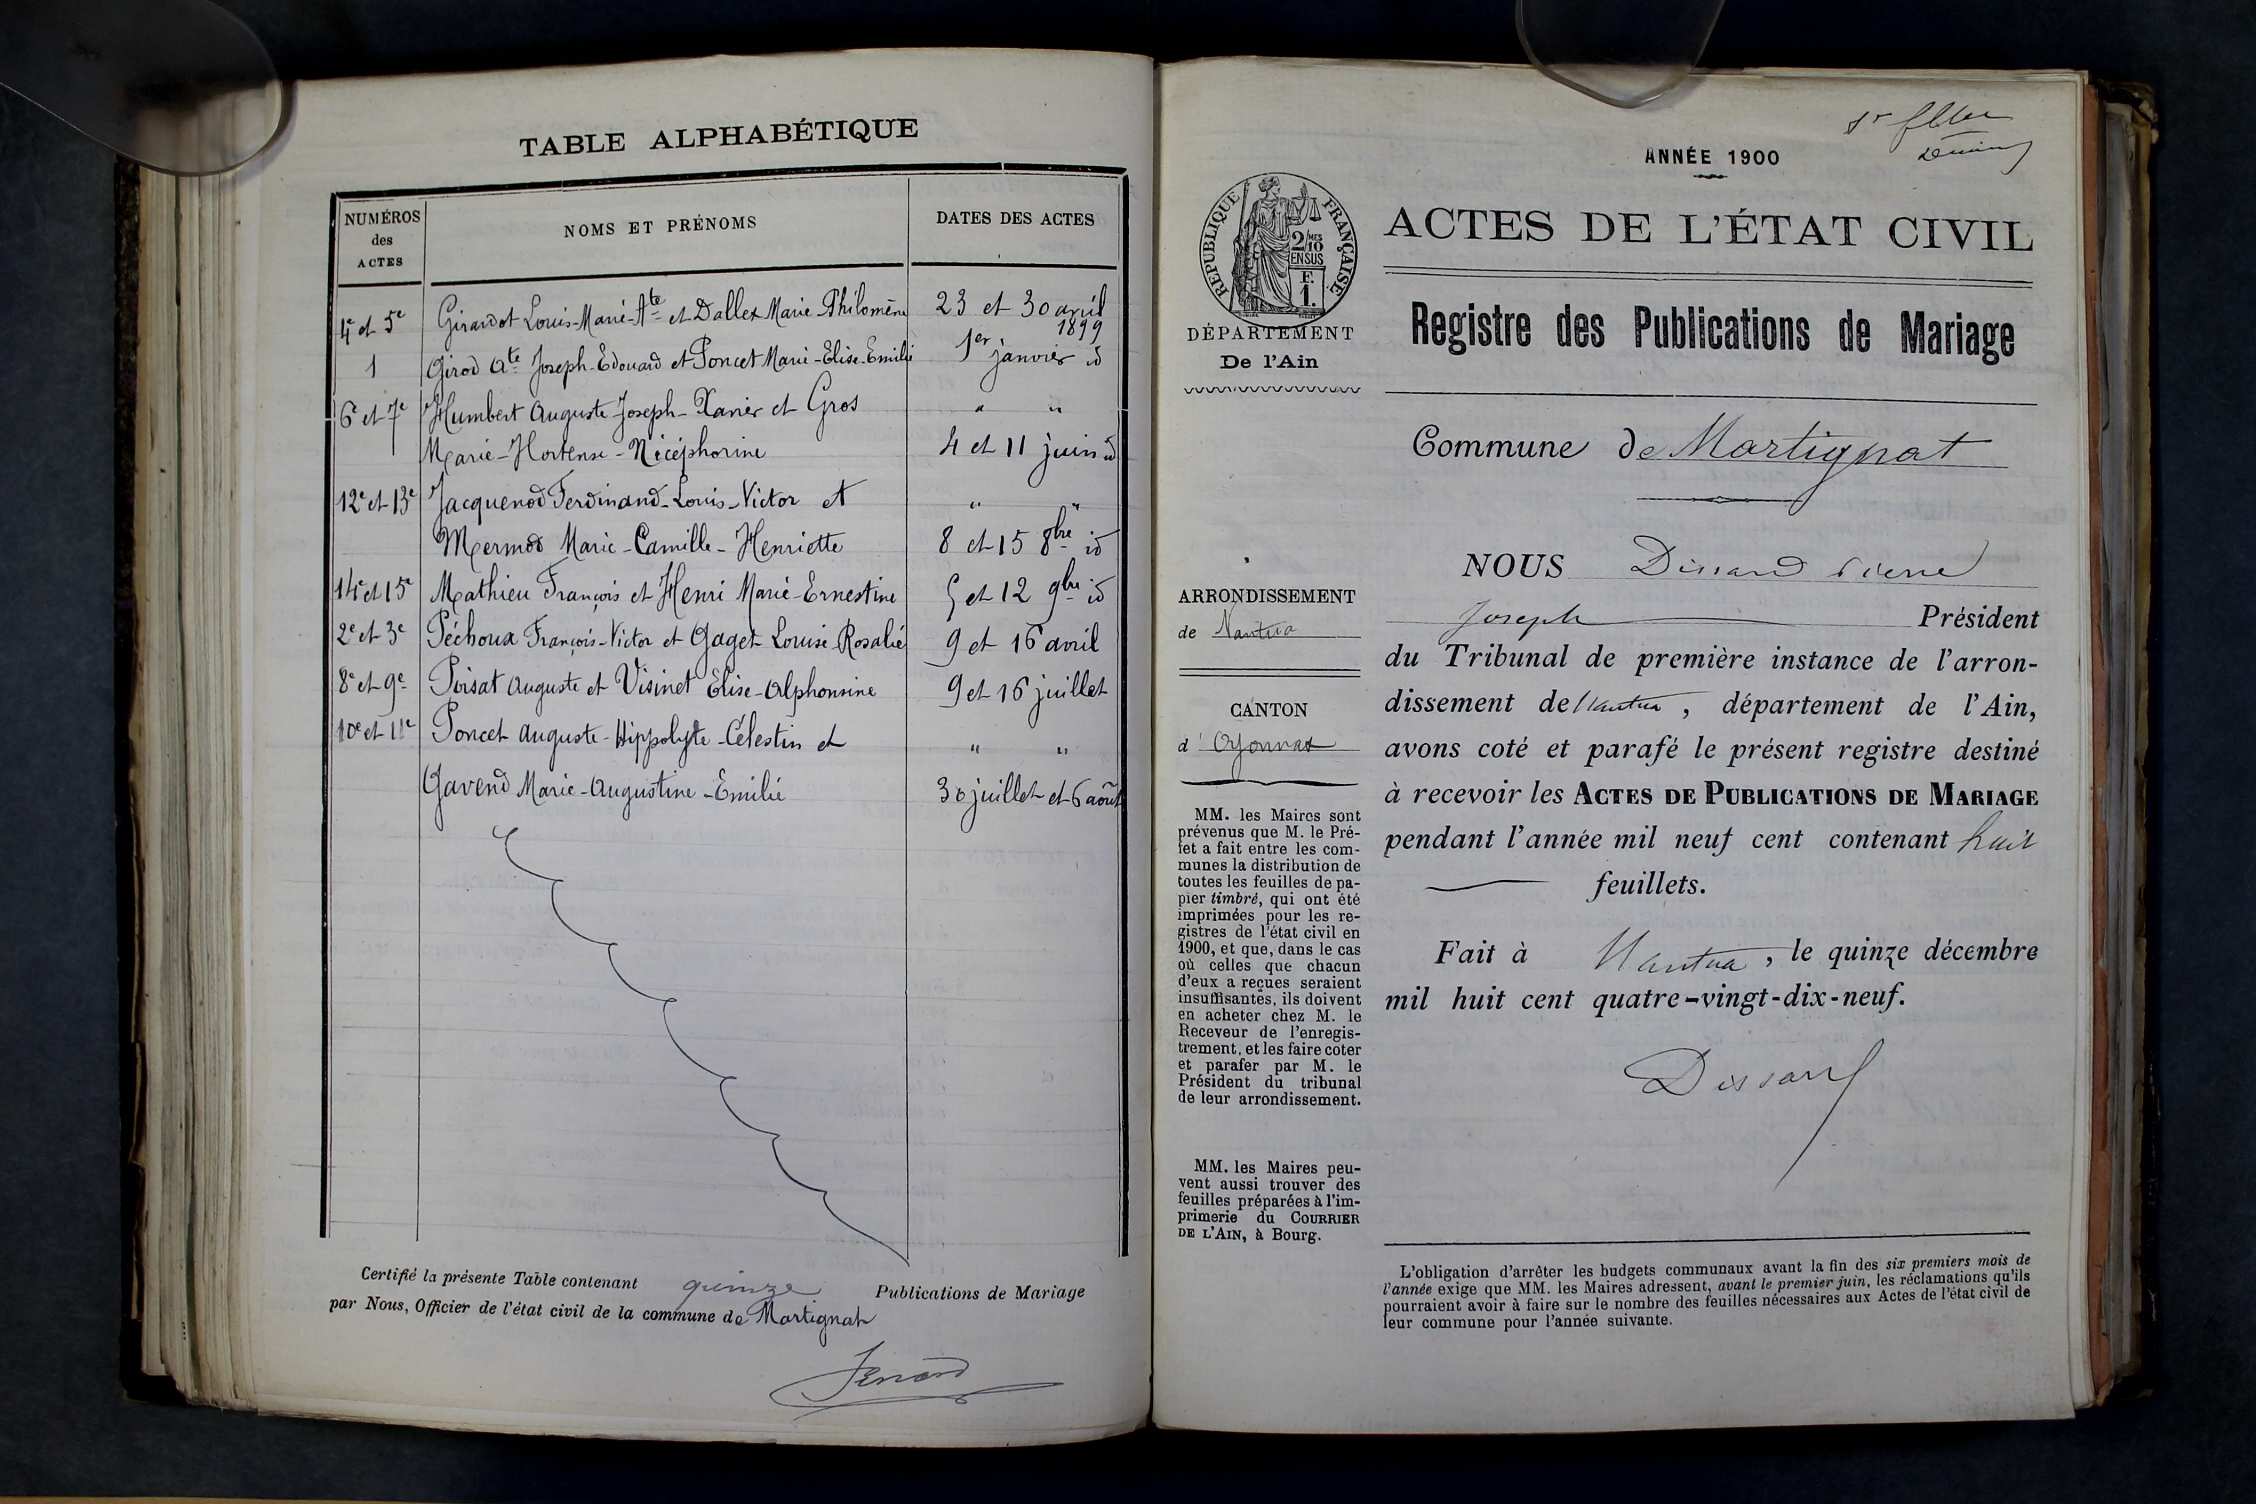 TABLE ALPHABÉTIQUE
NUMÉROS
des
ACTES
NOMS ET PRÉNOMS
DATES DES ACTES
4e et 5e Girardot Louis-Marie-Ate et Dallex Marie Philomène 23 et 30 avril 1899
1 Girod Ate Joseph-Edouard et Poncet Marie-Elise-Emilie 1er janvier id
6e et 7e Humbert Auguste Joseph-Xavier et Gros " "
Marie-Hortense-Nicéphorine 4 et 11 juin id
12e et 13e Jacquenod Ferdinand-Louis-Victor et " "
Mermod Marie-Camille-Henriette 8 et 15 8bre id
14e et 15e Mathieu François et Henri Marie-Ernestine 5 et 12 9bre id
2e et 3e Péchoux François-Victor et Gaget Louise Rosalie 9 et 16 avril
8e et 9e Poisat Auguste et Visinet Elise-Alphonsine 9 et 16 juillet
10e et 11e Poncet Auguste-Hippolyte-Célestin et " "
Gavend Marie-Augustine-Emilie 30 juillet et 6 août
Certifié la présente Table contenant quinze Publications de Mariage
par Nous, Officier de l'état civil de la commune de Martignat
ANNÉE 1900
RÉPUBLIQUE FRANÇAISE
2/10MES
EN SUS
F.
1.
DÉPARTEMENT
De l'Ain
ACTES DE L'ÉTAT CIVIL
Registre des Publications de Mariage
Commune de Martignat
ARRONDISSEMENT
de Nantua
CANTON
d' Oyonnax
MM. les Maires sont
prévenus que M. le Pré-
fet a fait entre les com-
munes la distribution de
toutes les feuilles de pa-
pier timbré, qui ont été
imprimées pour les re-
gistres de l'état civil en
1900, et que, dans le cas
où celles que chacun
d'eux a reçues seraient
insuffisantes, ils doivent
en acheter chez M. le
Receveur de l'enregis-
trement, et les faire coter
et parafer par M. le
Président du tribunal
de leur arrondissement.
MM. les Maires peu-
vent aussi trouver des
feuilles préparées à l'im-
primerie du COURRIER
DE L'AIN, à Bourg.
NOUS Dissard Pierre
Joseph Président
du Tribunal de première instance de l'arron-
dissement de Nantua, département de l'Ain,
avons coté et parafé le présent registre destiné
à recevoir les ACTES DE PUBLICATIONS DE MARIAGE
pendant l'année mil neuf cent contenant huit
feuillets.
Fait à Nantua, le quinze décembre
mil huit cent quatre-vingt-dix-neuf.
Dissard
L'obligation d'arrêter les budgets communaux avant la fin des six premiers mois de
l'année exige que MM. les Maires adressent, avant le premier juin, les réclamations qu'ils
pourraient avoir à faire sur le nombre des feuilles nécessaires aux Actes de l'état civil de
leur commune pour l'année suivante.